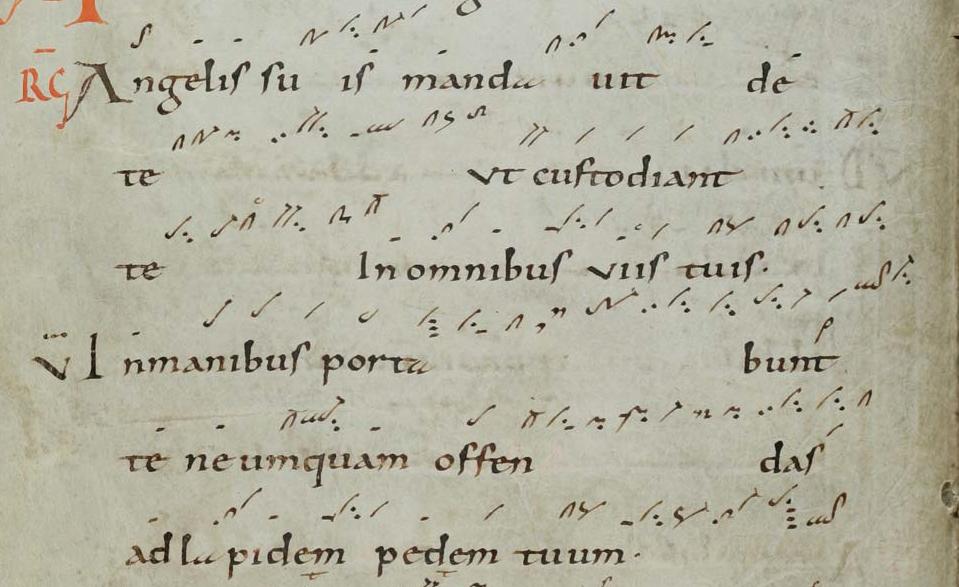 RG Angelis su is manda uit de
te ut custodiant
te In omnibus viis tuis.
V In manibus porta bunt
te ne umquam offen das
ad la pidem pedem tuum.